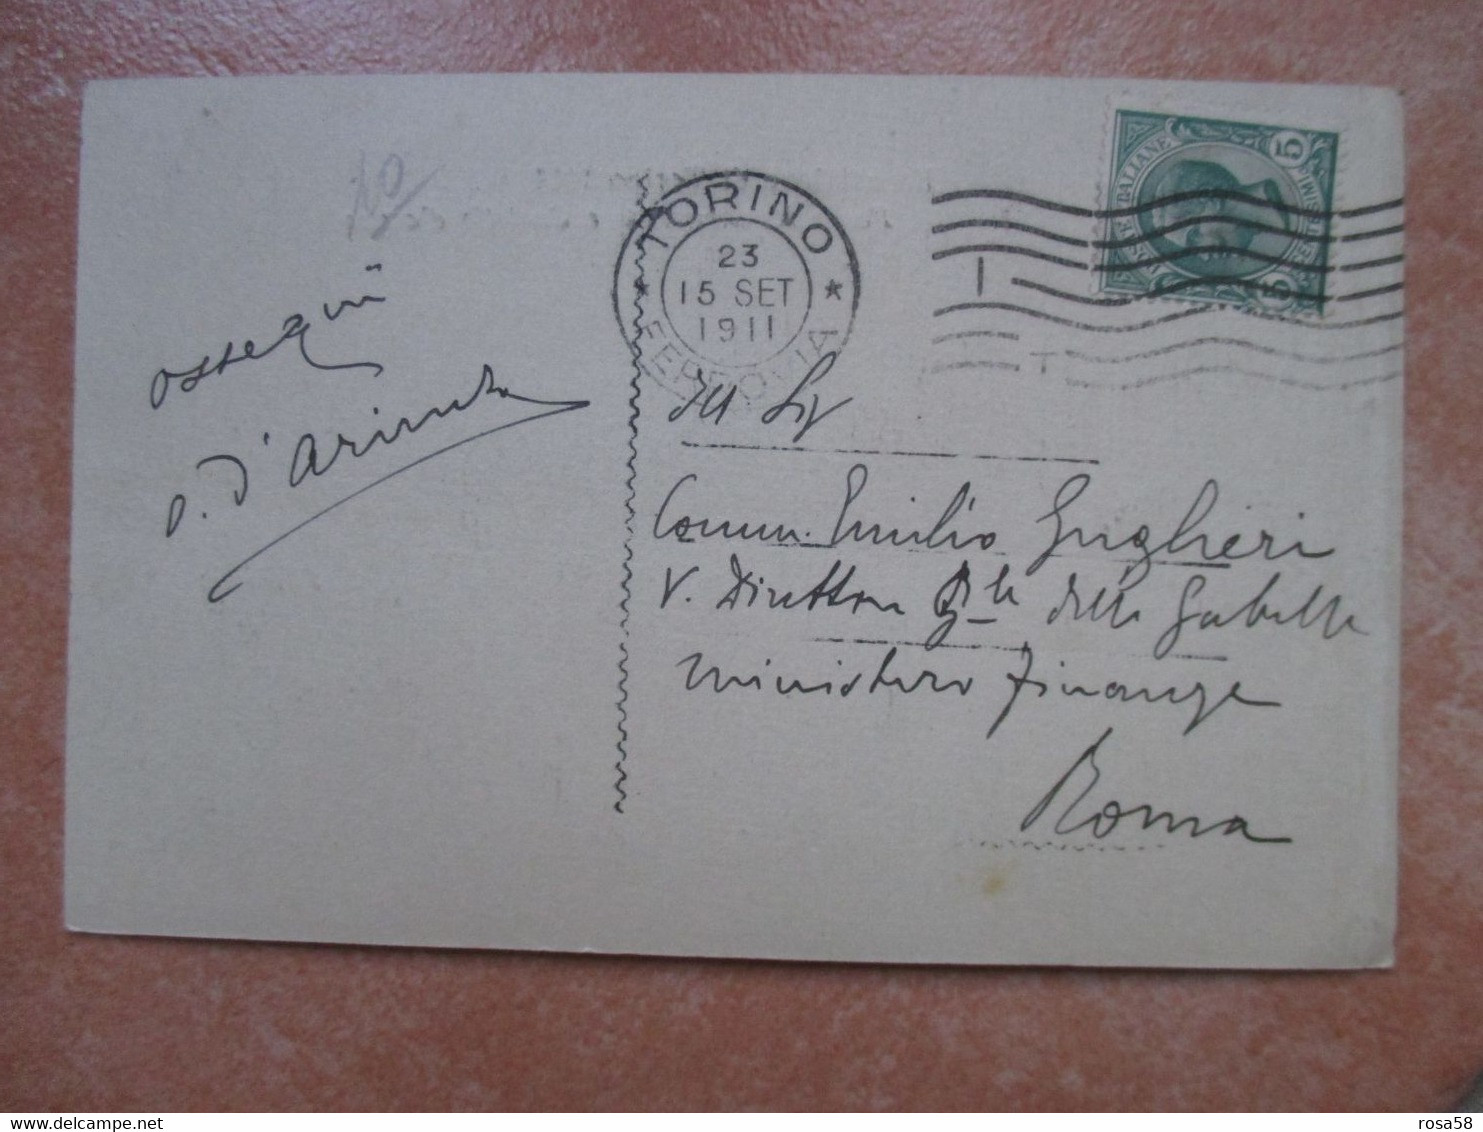 ossequi
TORINO
23
15 SET
1911
FERROVIA
POSTE ITALIANE
5
5
Ill Sig
Comm. Emilio Guglieri
V. Direttore Gle delle Gabelle
Ministero Finanze
Roma
rosa58